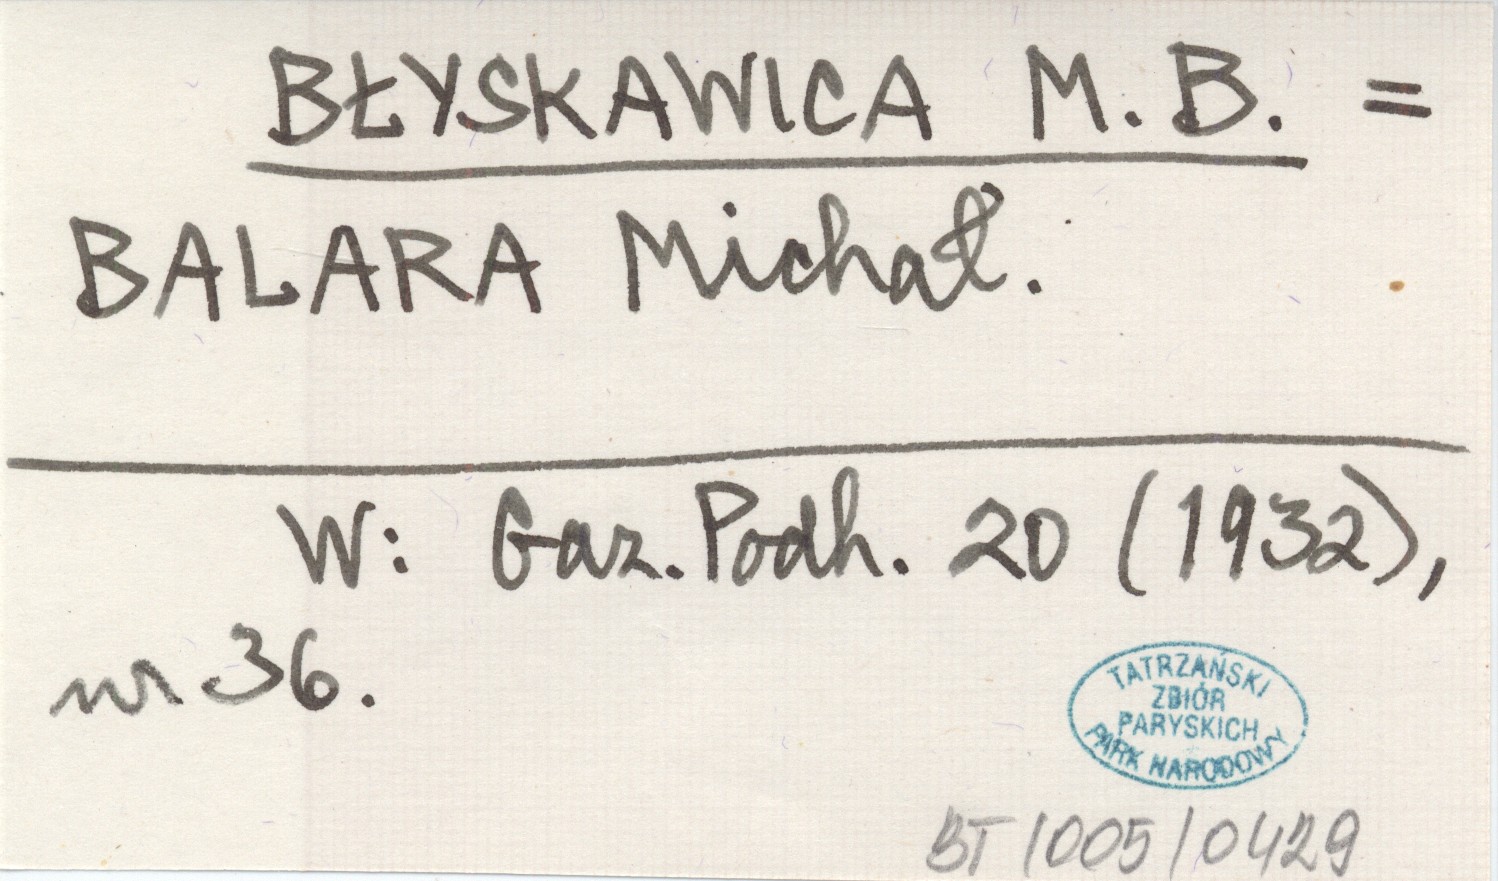 BŁYSKAWICA M. B. =
BALARA Michał.
W: Gaz. Podh. 20 (1932),
nr 36.
TATRZAŃSKI
ZBIÓR
PARYSKICH
PARK NARODOWY
BT/005/0429